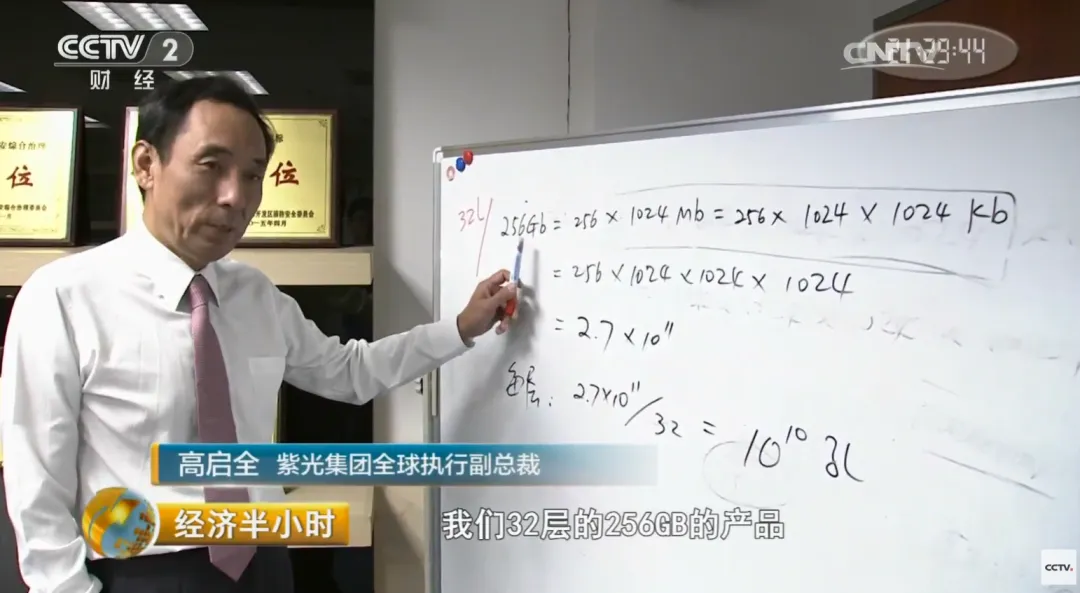 CCTV 2
财 经
CNTV 21:29:44
安综合治理
位
位
开发区消防安全委员会
一五年四月
32L
256Gb = 256 × 1024 Mb = 256 × 1024 × 1024 Kb
= 256 × 1024 × 1024 × 1024
= 2.7 × 10¹¹
每层: 2.7×10¹¹/32 = 10¹⁰ 孔
高启全 紫光集团全球执行副总裁
经济半小时
我们32层的256GB的产品
CCTV.